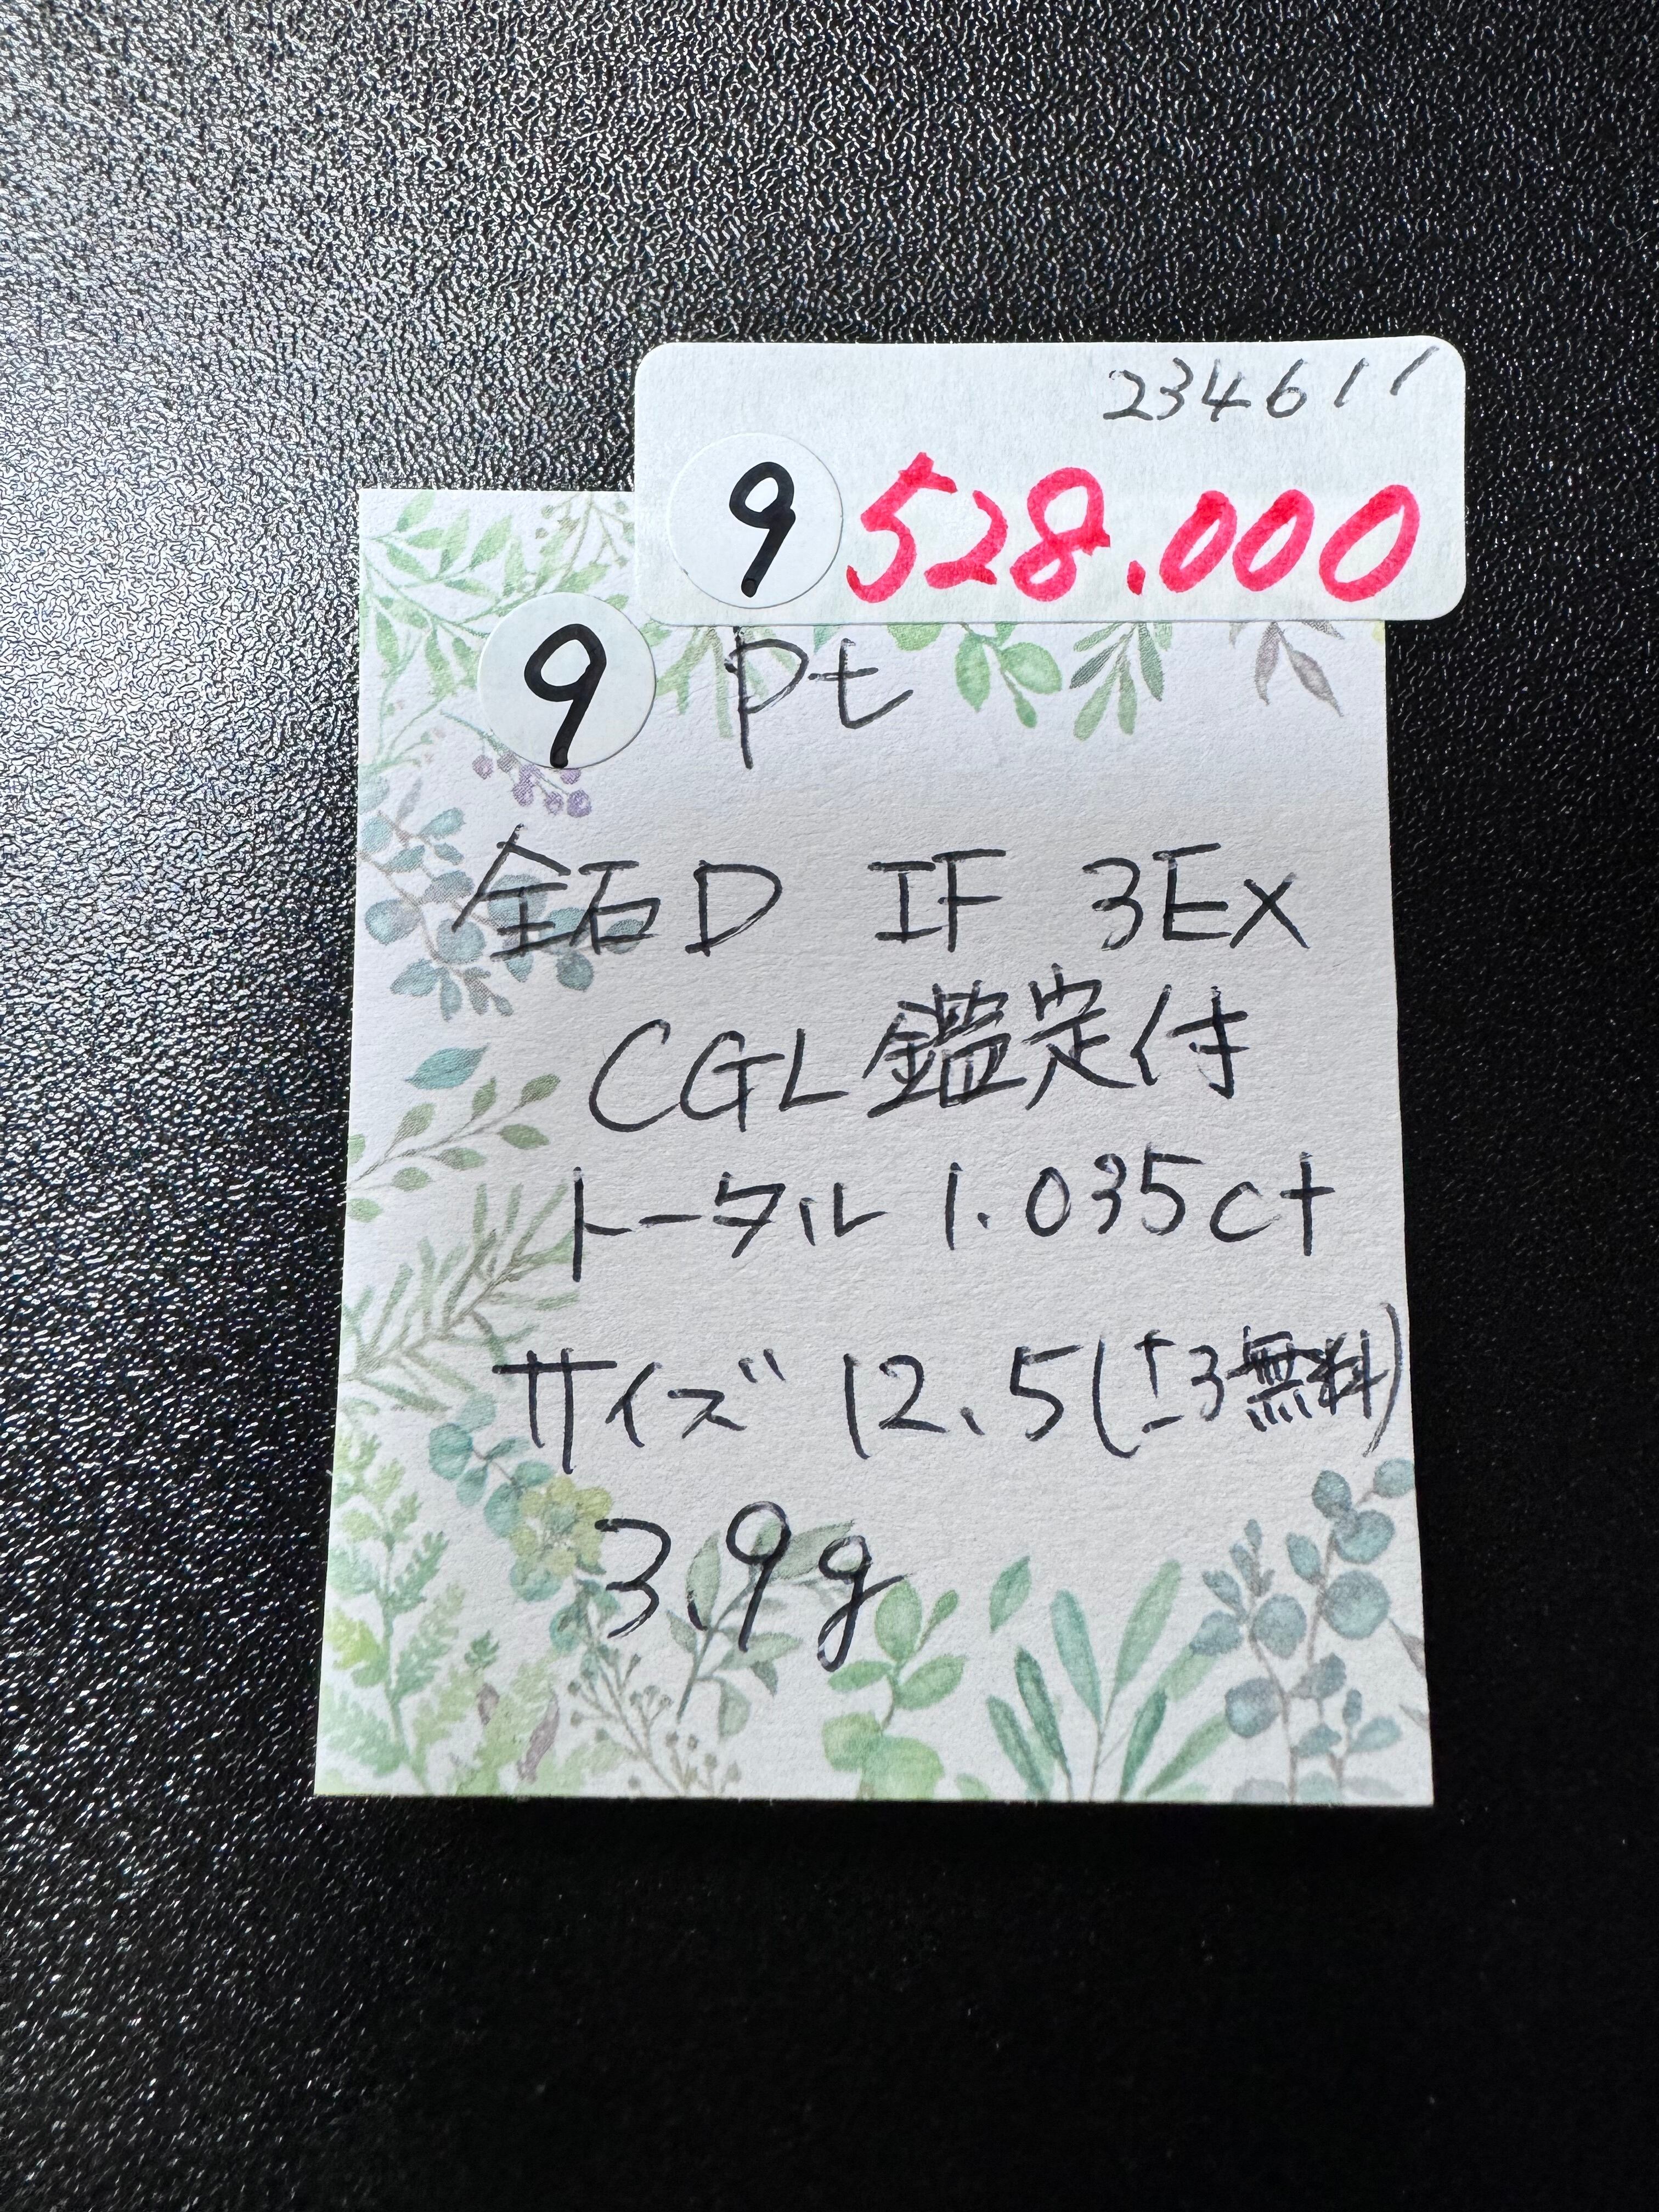 234611
9 528.000
9 Pt
全石D IF 3Ex
CGL鑑定付
トータル 1.035ct
サイズ 12.5(±3無料)
3.9g